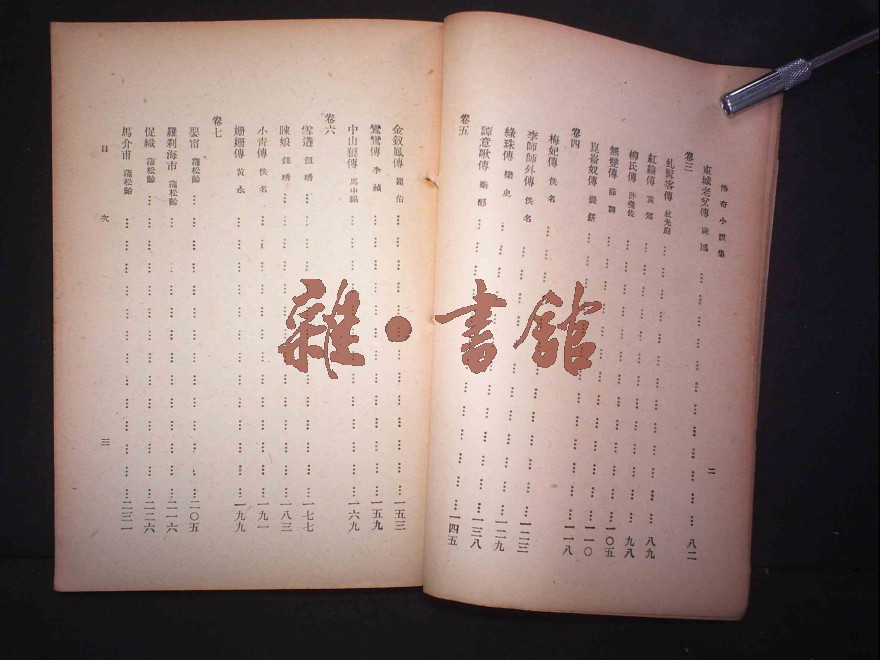 傳奇小說集
二
東城老父傳 陳鴻 …… 八二
卷三
虬髯客傳 杜光庭 …… 八九
紅線傳 袁郊 …… 九八
柳氏傳 許堯佐 …… 一〇五
無雙傳 薛調 …… 一一〇
崑崙奴傳 裴鉶 …… 一一八
卷四
梅妃傳 佚名 …… 一二三
李師師外傳 佚名 …… 一二九
綠珠傳 樂史 …… 一三八
譚意歌傳 秦醇 …… 一四五
卷五
金釵鳳傳 瞿佑 …… 一五三
鸞鸞傳 李禎 …… 一五九
中山狼傳 馬中錫 …… 一六九
卷六
雪遘 鈕琇 …… 一七七
睞娘 鈕琇 …… 一八三
小青傳 佚名 …… 一九一
姍姍傳 黃永 …… 一九九
卷七
嬰甯 蒲松齡 …… 二〇五
羅刹海市 蒲松齡 …… 二一六
促織 蒲松齡 …… 二二六
馬介甫 蒲松齡 …… 二三一
目次
三
雜•書館